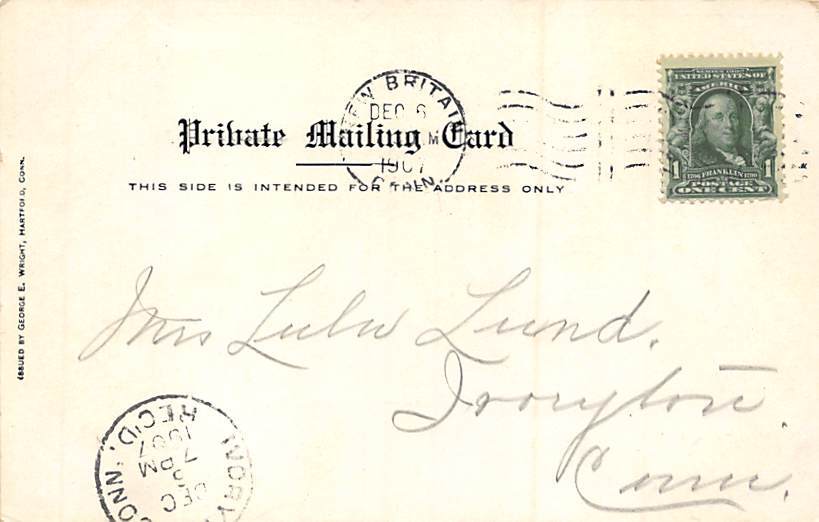 NEW BRITAIN
DEC 6
M
1907
CONN.
Private Mailing Card
THIS SIDE IS INTENDED FOR THE ADDRESS ONLY
SERIES 1902
UNITED STATES OF
AMERICA
1 1
1706 FRANKLIN 1790
POSTAGE
ONE CENT
ISSUED BY GEORGE E. WRIGHT, HARTFORD, CONN.
Miss Lulu Lund.
Ivoryton
Conn.
IVORY
CONN.
DEC
6
7 PM
1907
REC'D.